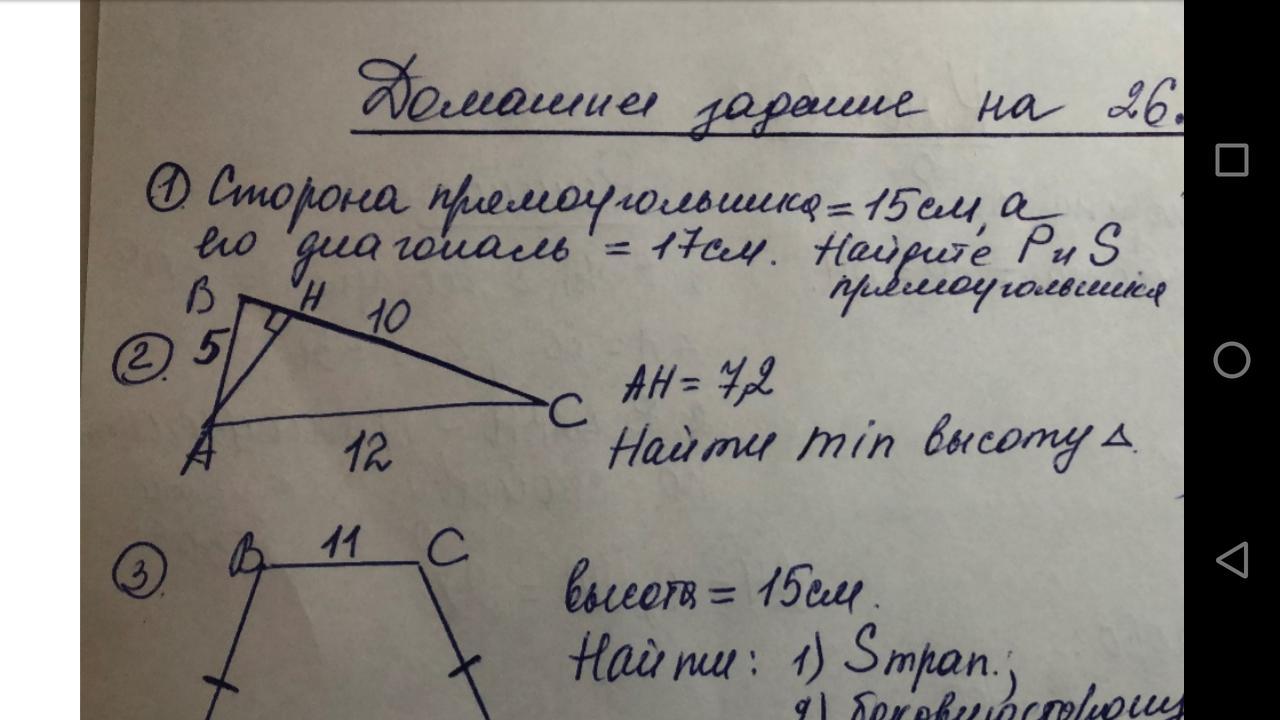 Домашнее задание на 26.
① Сторона прямоугольника = 15см, а
его диагональ = 17см. Найдите P и S
прямоугольника
B H 10
② 5
AH = 7,2
A 12 C
Найти min высоту △.
③ B 11 C
высота = 15см.
Найти: 1) Sтрап.;
2) боковую сторону